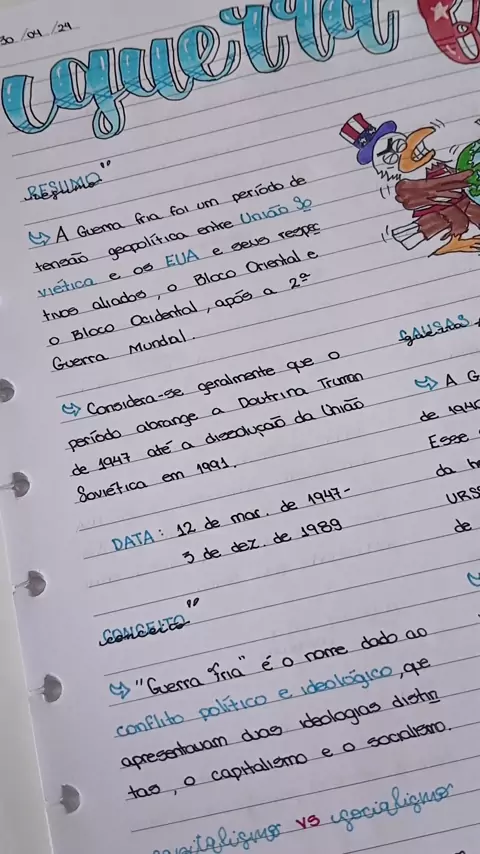 30/04/24
guerra
RESUMO"
A Guerra fria foi um período de
tensão geopolítica entre União So
viética e os EUA e seus respec
tivos aliados, o Bloco Oriental e
o Bloco Ocidental, após a 2ª
Guerra Mundial.
Considera-se geralmente que o
período abrange a Doutrina Truman
de 1947 até a dissolução da União
Soviética em 1991.
DATA: 12 de mar. de 1947-
3 de dez. de 1989
CONCEITO"
"Guerra fria" é o nome dado ao
conflito político e ideológico, que
apresentavam duas ideologias distin
tas, o capitalismo e o socialismo.
capitalismo vs socialismo
CAUSAS
A G
de 194
Esse
da
URSS
de